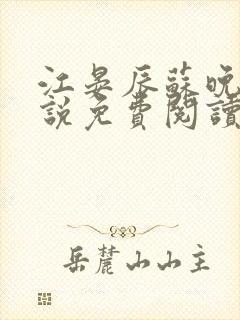 江晏辰蘇晚
說免費閱讀
岳麓山山主